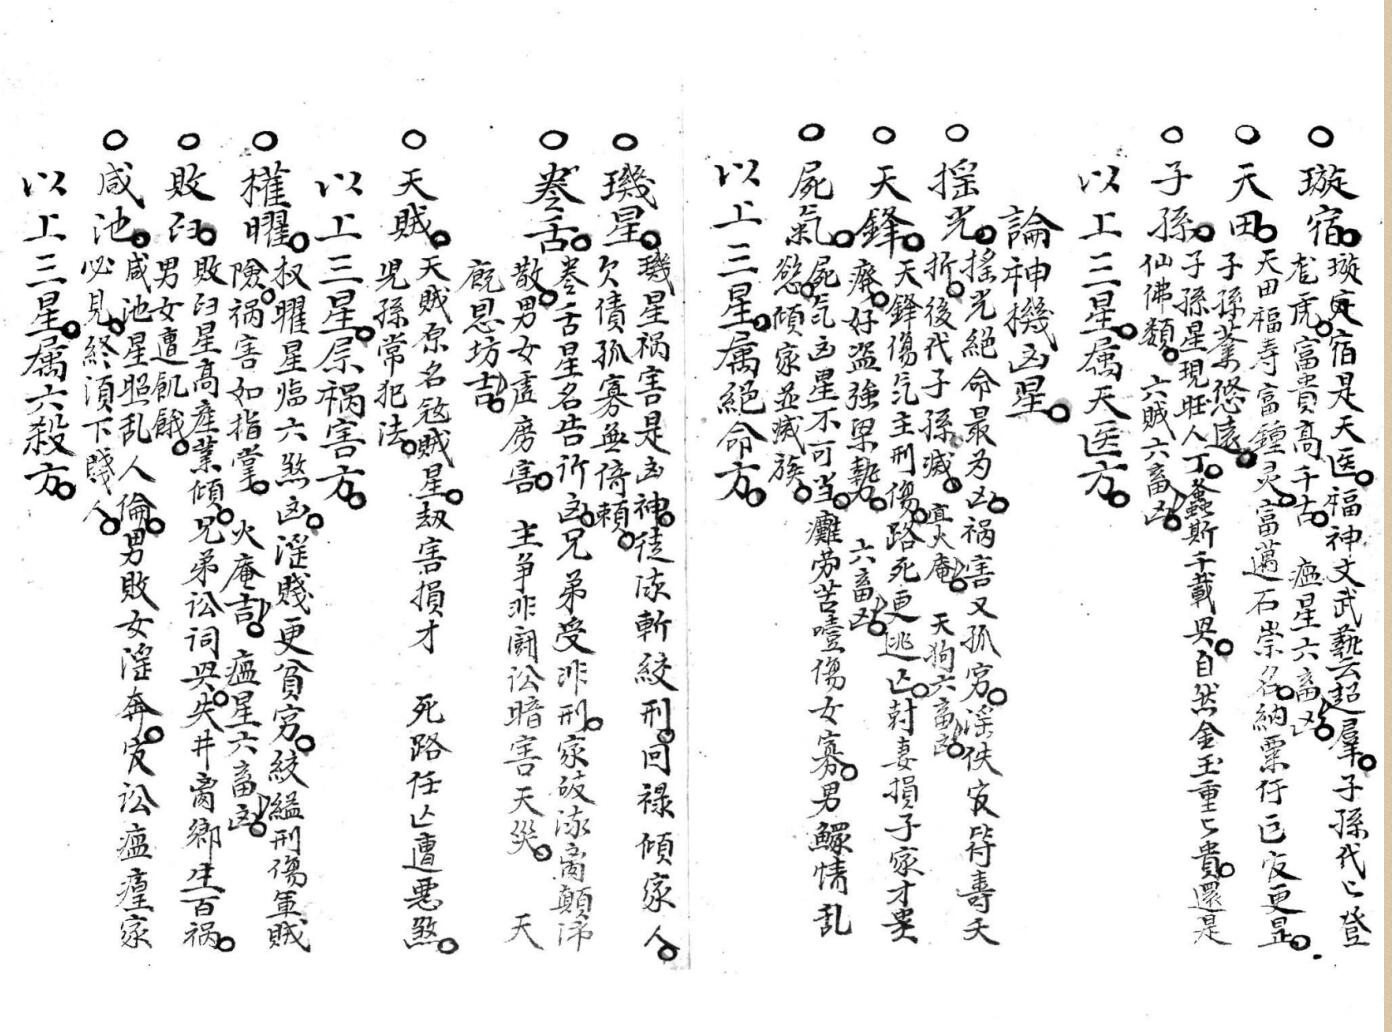 ○璇宿。璇宿是天医。福神文武藝云超羣。子孫代〻登
龙虎。富貴高千古。 瘟星六畜凶。
○天田。天田福寿富鍾灵。富邁石崇名。納粟行官更
子孫業悠遠。
○子孫。子孫星現旺人丁。螽斯千載興。自然金玉重〻貴。還是
仙佛類。 六賊六畜凶。
以上三星。属天医方。
論神機凶星。
○摇光。摇光絕命最为凶。祸害又孤穷。淫佚官符壽夭
折。後代子孫滅。宜火庵。 天狗六畜凶。
○天鋒。天鋒傷气主刑傷。路死更逃亡。尅妻損子家才
癈。好盗強梁勢。 六畜凶。
○屍氣。屍气凶星不可当。癱劳苦噎傷。女寡。男鰥情乱
慾。傾家並滅族。
以上三星。属絕命方。
○璣星。璣星祸害是凶神。徒流斬絞刑。回禄傾家人。
欠債孤寡無倚賴。
○卷舌。卷舌星名告訴凶。兄弟受非刑。家破流离顛沛
散。男女虚痨害。 主争非鬪訟暗害天災。 天
厩恩坊吉。
○天賊。天賊原名寇賊星。劫害損才 死路任亡遭悪煞。
児孫常犯法。
以上三星。属祸害方。
○權曜。权曜星临六煞凶。淫賤更貧穷。絞縊刑傷軍賊
險。祸害如指掌。 火庵吉。 瘟星六畜凶。
○敗臼。敗臼星高産業傾。兄弟訟詞興。失井离鄉生百祸。
男女遭飢餓。
○咸池。咸池星照乱人倫。男敗女淫奔。官訟瘟㾮家
必見。終須下賤人。
以上三星。属六殺方。